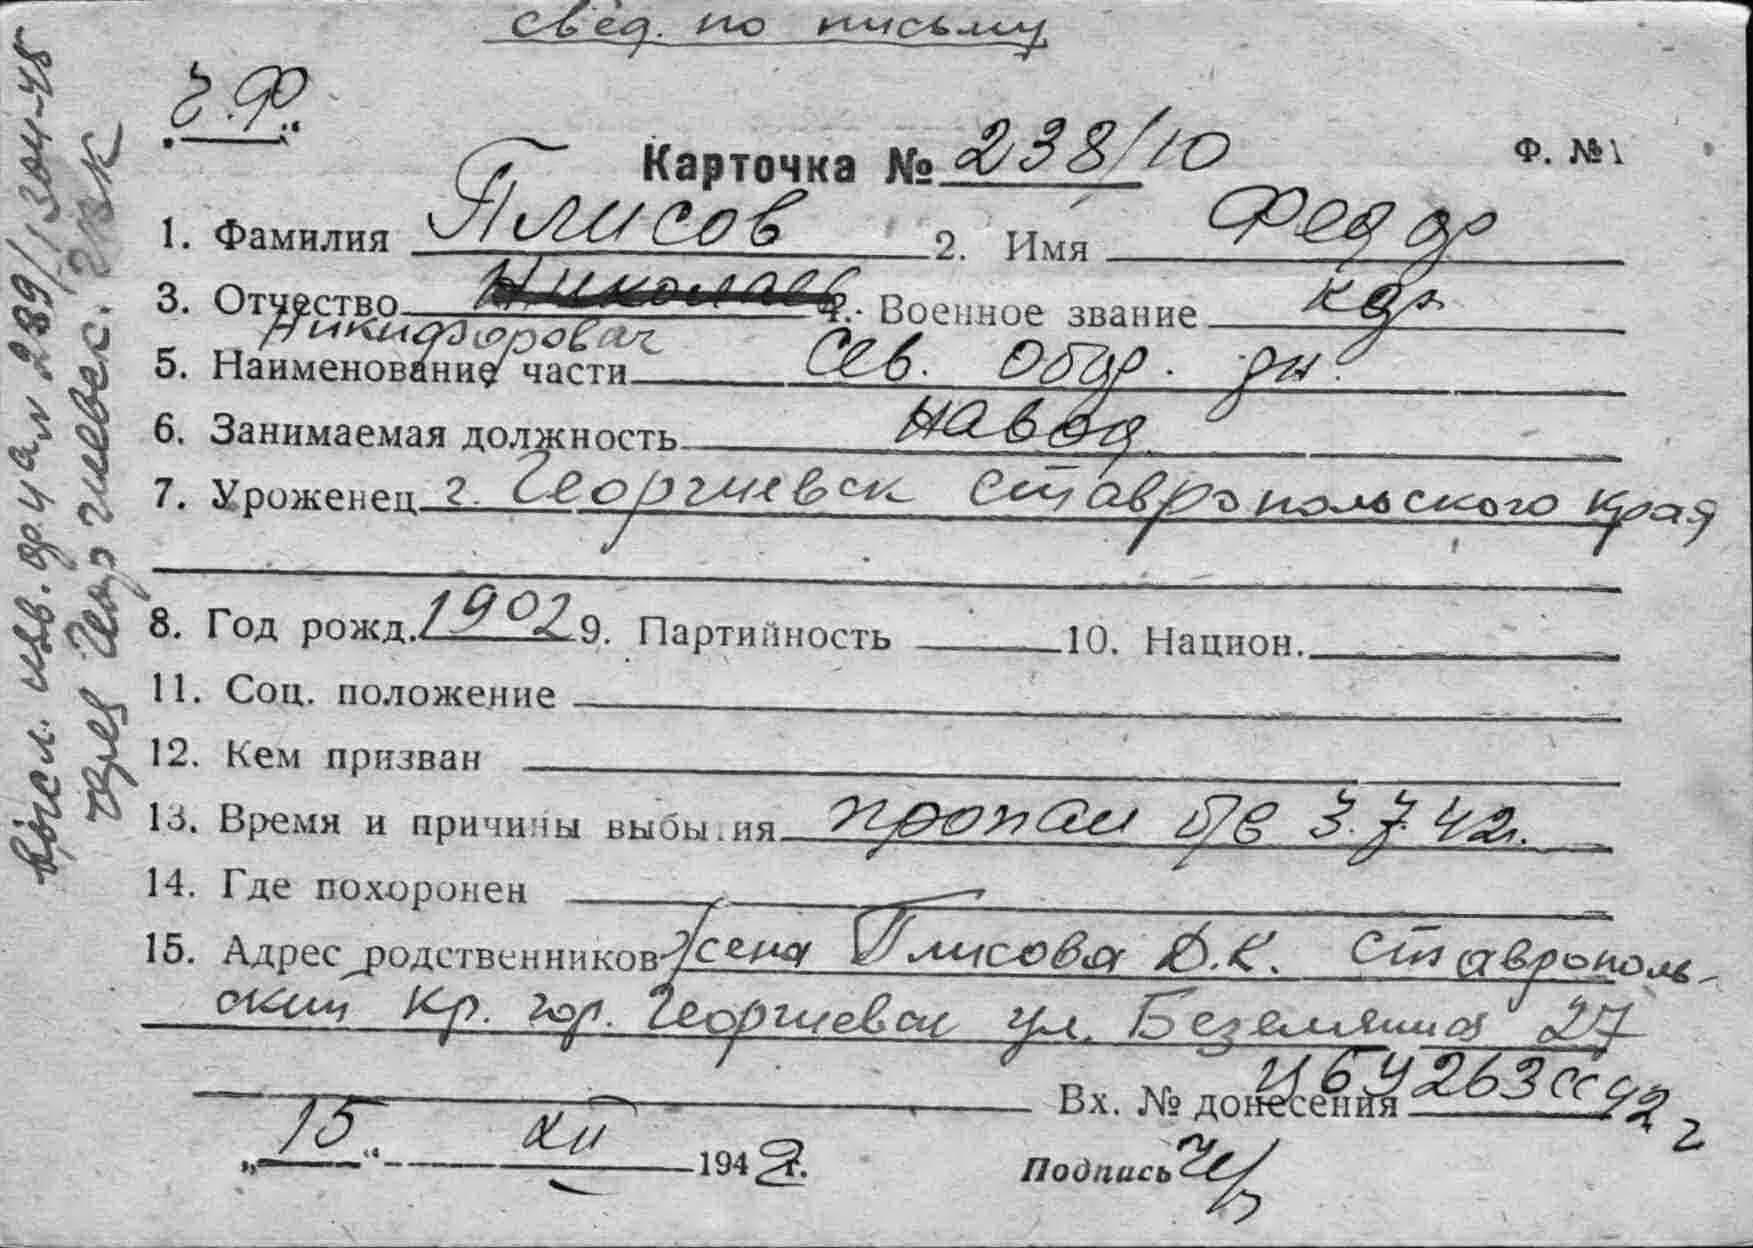 свед. по письму
Ч.Ф.
Карточка № 238/10
Ф. №1
1. Фамилия Плисов 2. Имя Федор
3. Отчество Николаев 4. Военное звание кр.
Никифорович
5. Наименование части Сев. обор. рн.
6. Занимаемая должность навод.
7. Уроженец г. Георгиевск Ставропольского края
8. Год рожд. 1902 9. Партийность 10. Национ.
11. Соц. положение
12. Кем призван
13. Время и причины выбытия пропал б/в 3.7.42г.
14. Где похоронен
15. Адрес родственников Жена Плисова Д.К. Ставрополь-
ский кр. гор. Георгиевск ул. Беземянная 27
Вх. № донесения 263сс 42 г
"15" XII 1942г.
Подпись
высл. изв. 289/1304-45
через Георгиевск. ГВК